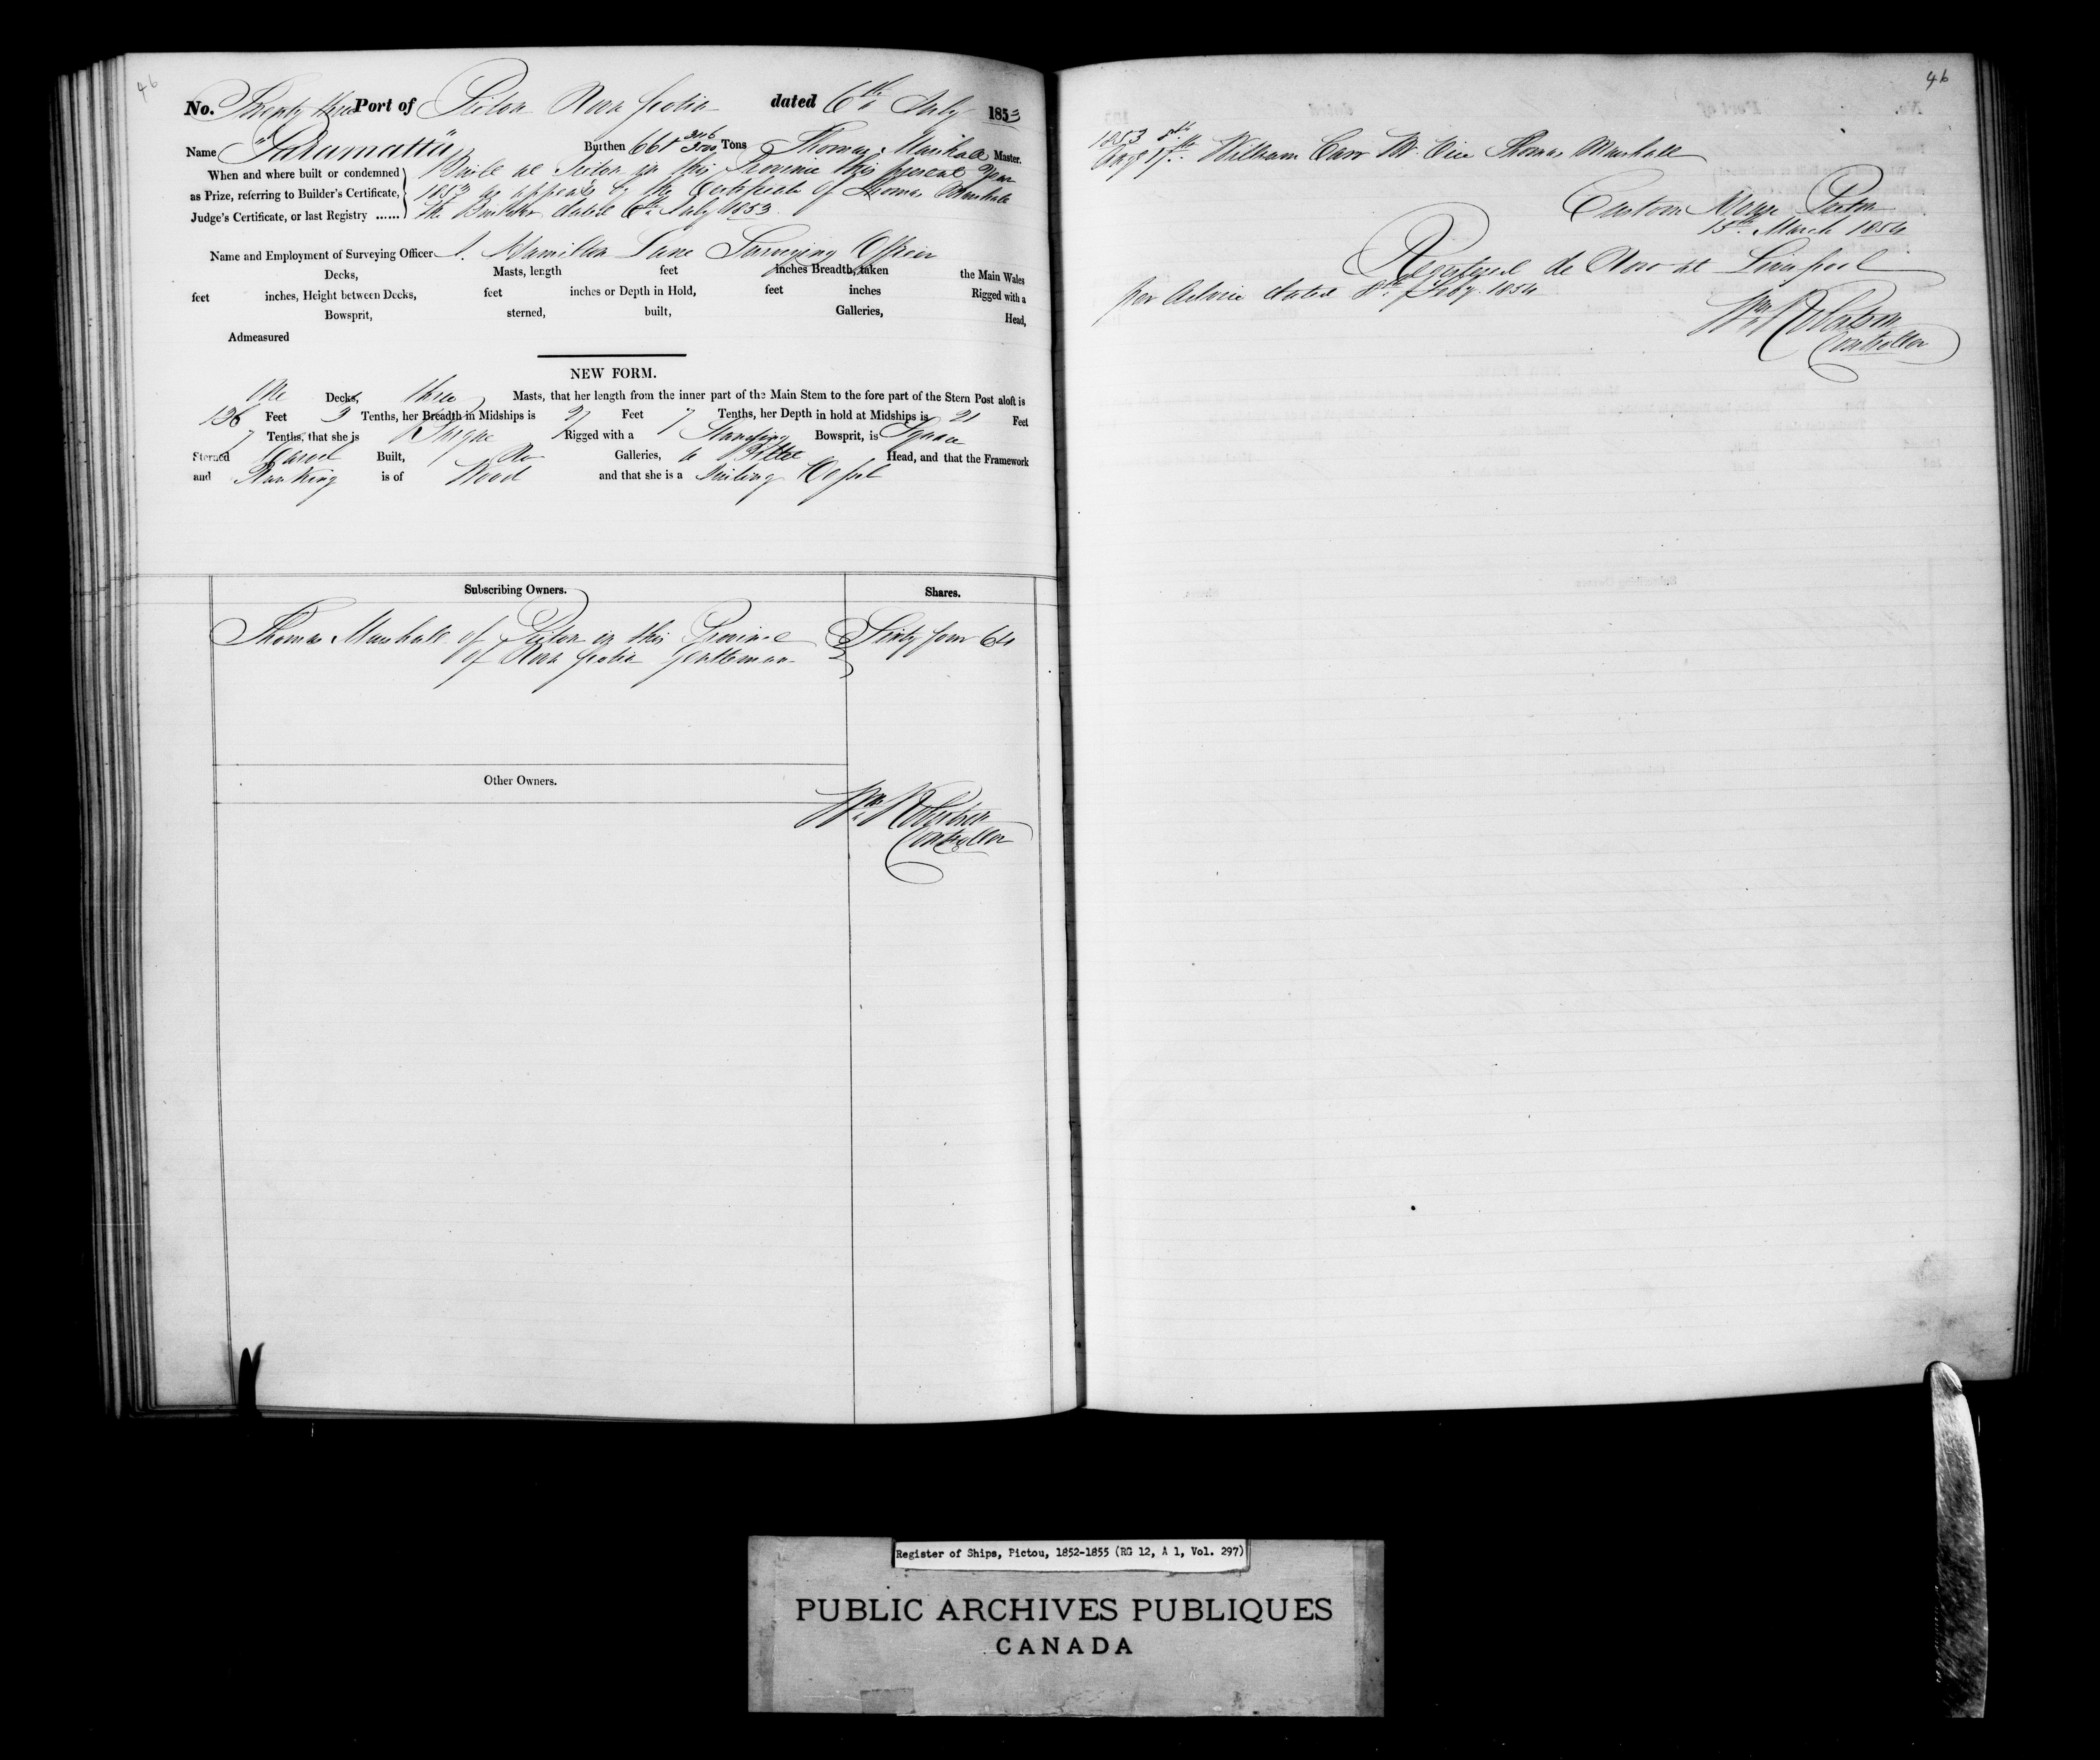 46
No. Twenty three Port of Pictou Nova Scotia dated 6th July 1853
Name "Paramatta" Burthen 661 Tons Thomas Marshall Master.
When and where built or condemned
as Prize, referring to Builder's Certificate,
Judge's Certificate, or last Registry ......
Built at Pictou in this Province this present Year
1853 as appears by the Certificate of Thomas Marshall
the Builder dated 6th July 1853.
Name and Employment of Surveying Officer J. Hamilton Lane Surveying Officer
Decks, Masts, length feet inches Breadth, taken the Main Wales
feet inches, Height between Decks, feet inches or Depth in Hold, feet inches Rigged with a
Bowsprit, sterned, built, Galleries, Head,
Admeasured
NEW FORM.
One Decks, three Masts, that her length from the inner part of the Main Stem to the fore part of the Stern Post aloft is
136 Feet 3 Tenths, her Breadth in Midships is 27 Feet 7 Tenths, her Depth in hold at Midships is 21 Feet
7 Tenths, that she is Barque Rigged with a Standing Bowsprit, is Square
Sterned Carvel Built, No Galleries, a Billet Head, and that the Framework
and Planking is of Wood and that she is a Sailing Vessel
Subscribing Owners. Shares.
Thomas Marshall of Pictou in this Province Sixty four 64
of Nova Scotia Gentleman
Other Owners.
Wm Robertson
Controller
46
1853
Augt 17th William Carr Mr. Vice Thomas Marshall
Custom House Pictou
15th March 1854
Registered de Novo at Liverpool
per Advice dated 8th Feby. 1854
Wm Robertson
Controller
Register of Ships, Pictou, 1852-1855 (RG 12, A 1, Vol. 297)
PUBLIC ARCHIVES PUBLIQUES
CANADA